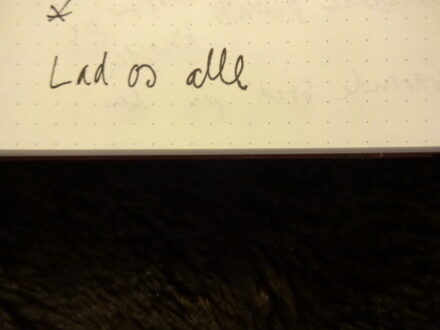 *
Lad os alle